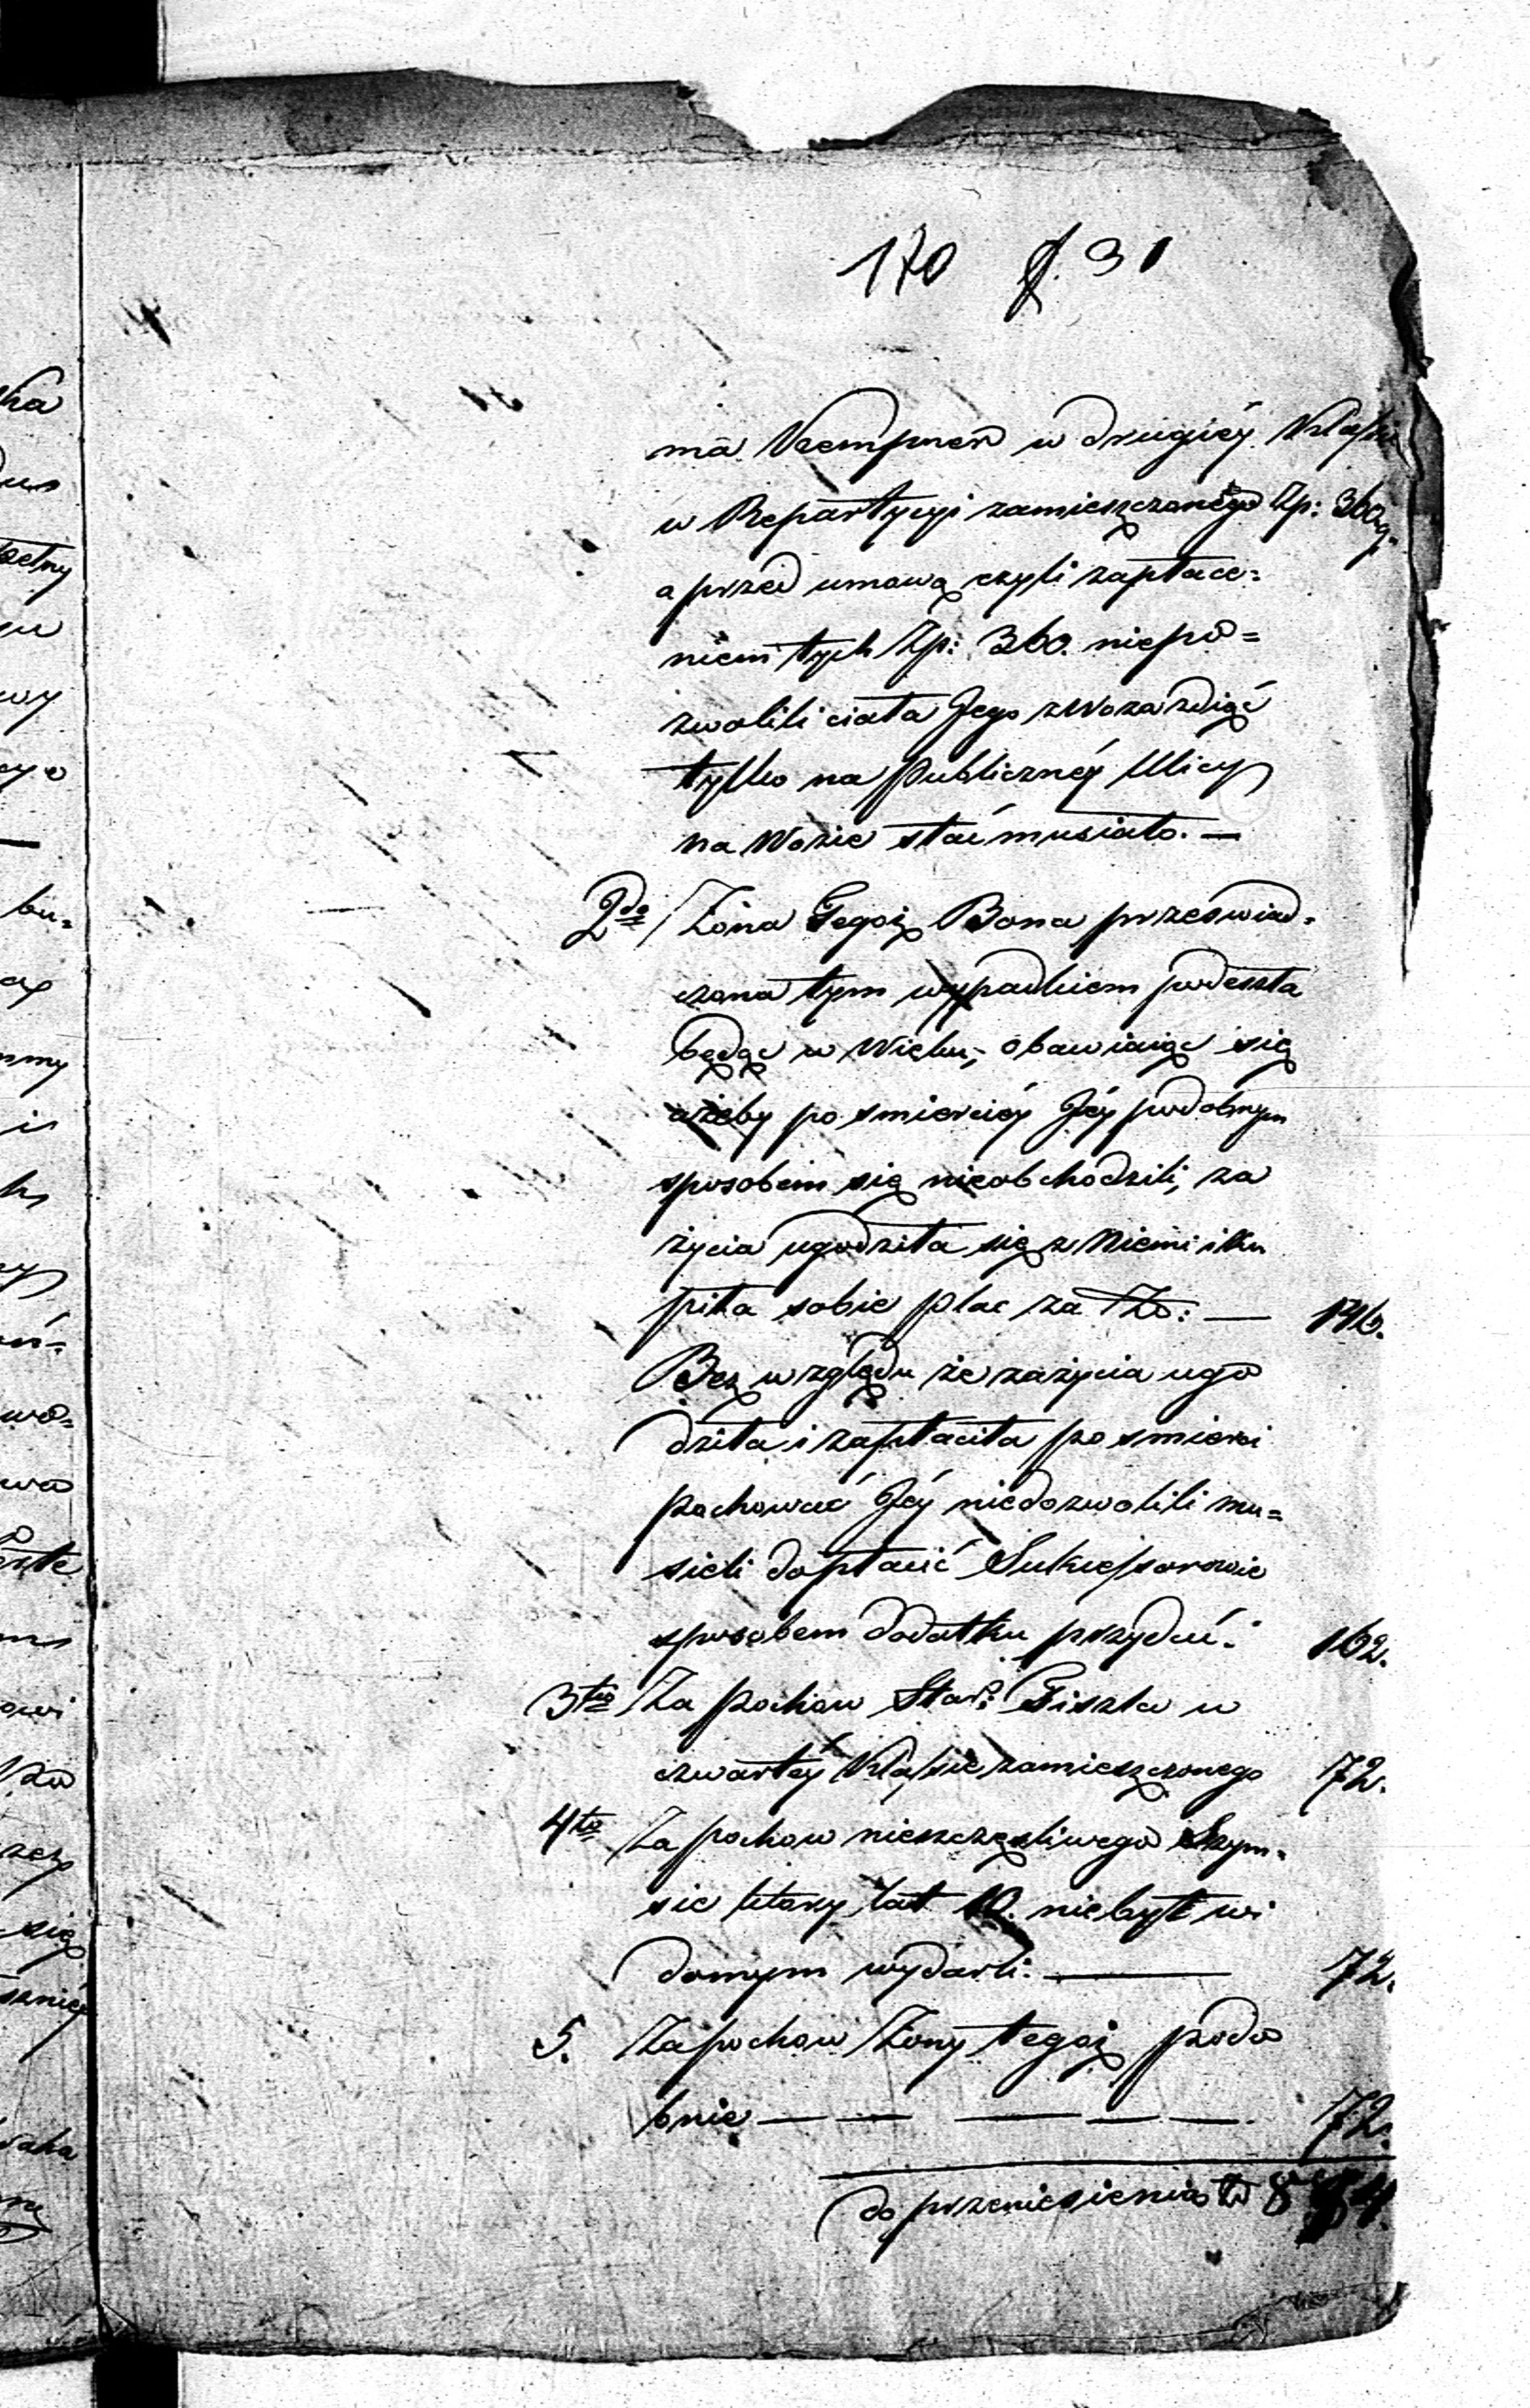 170 31
ma Kempner w drugiéy Klassie
w Repartycyi zamieszczonego Zp: 360
a przed umową czyli zapłace=
niem tych Zp: 360. niepo=
zwolili ciała Jego z Woza zdiąć
tylko na Publicznéy Ulicy
na Wozie stać musiało. —
2do Żona Tegoż Bona przeswiad=
czona tym wypadkiem podeszła
będąc w Wieku, obawiaiąc się
ażeby po smierciéy Jéy podobnym
sposobem się nieobchodzili, za
życia ugodziła się z Niemi i ku
piła sobie plac za Zł: — 146.
Bez względu że zażycia ugo
dziła i zapłaciła po smierci
pochować Jéy niedozwolili mu=
sieli dopłacić Sukcessorowie
sposobem dodatku 162.
3tio Za pochow Star: Fiszla w
czwartéy Klassie zamieszczonego 72.
4to Za pochow nieszczęsliwego Szym=
sie który lat 10. niebył wi
domym wydarli. — 72.
5. Za pochow Żony tegoż podo
bnie — — — — — 72.
do przeniesienia